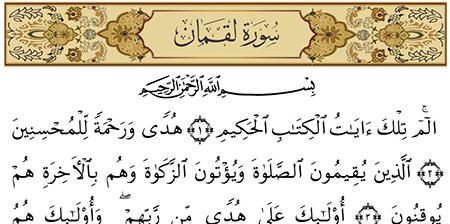 سُورَةُ لُقْمَانَ
بِسْمِ اللَّهِ الرَّحْمَٰنِ الرَّحِيمِ
الٓمٓ تِلْكَ ءَايَٰتُ الْكِتَٰبِ الْحَكِيمِ ۝١ هُدًى وَرَحْمَةً لِّلْمُحْسِنِينَ
۝٢ الَّذِينَ يُقِيمُونَ الصَّلَوٰةَ وَيُؤْتُونَ الزَّكَوٰةَ وَهُم بِالْءَاخِرَةِ هُمْ
يُوقِنُونَ ۝٣ أُو۟لَٰٓئِكَ عَلَىٰ هُدًى مِّن رَّبِّهِمْ ۖ وَأُو۟لَٰٓئِكَ هُمُ